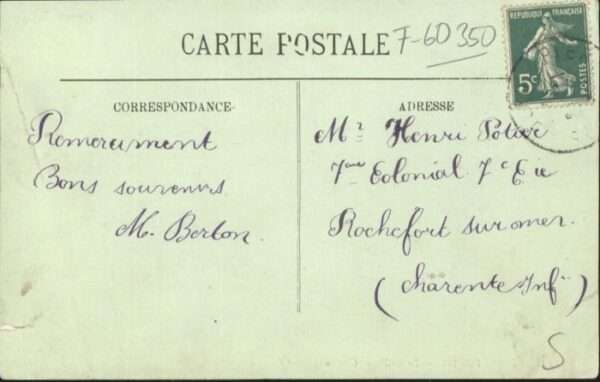 CARTE POSTALE
7-60 350
REPUBLIQUE FRANÇAISE
5c
POSTES
CORRESPONDANCE
Remerciement
Bons souvenirs
M. Berton.
ADRESSE
Mr Henri
7eme Colonial 7e Cie
Rochefort sur mer.
(Charente Infre)
S